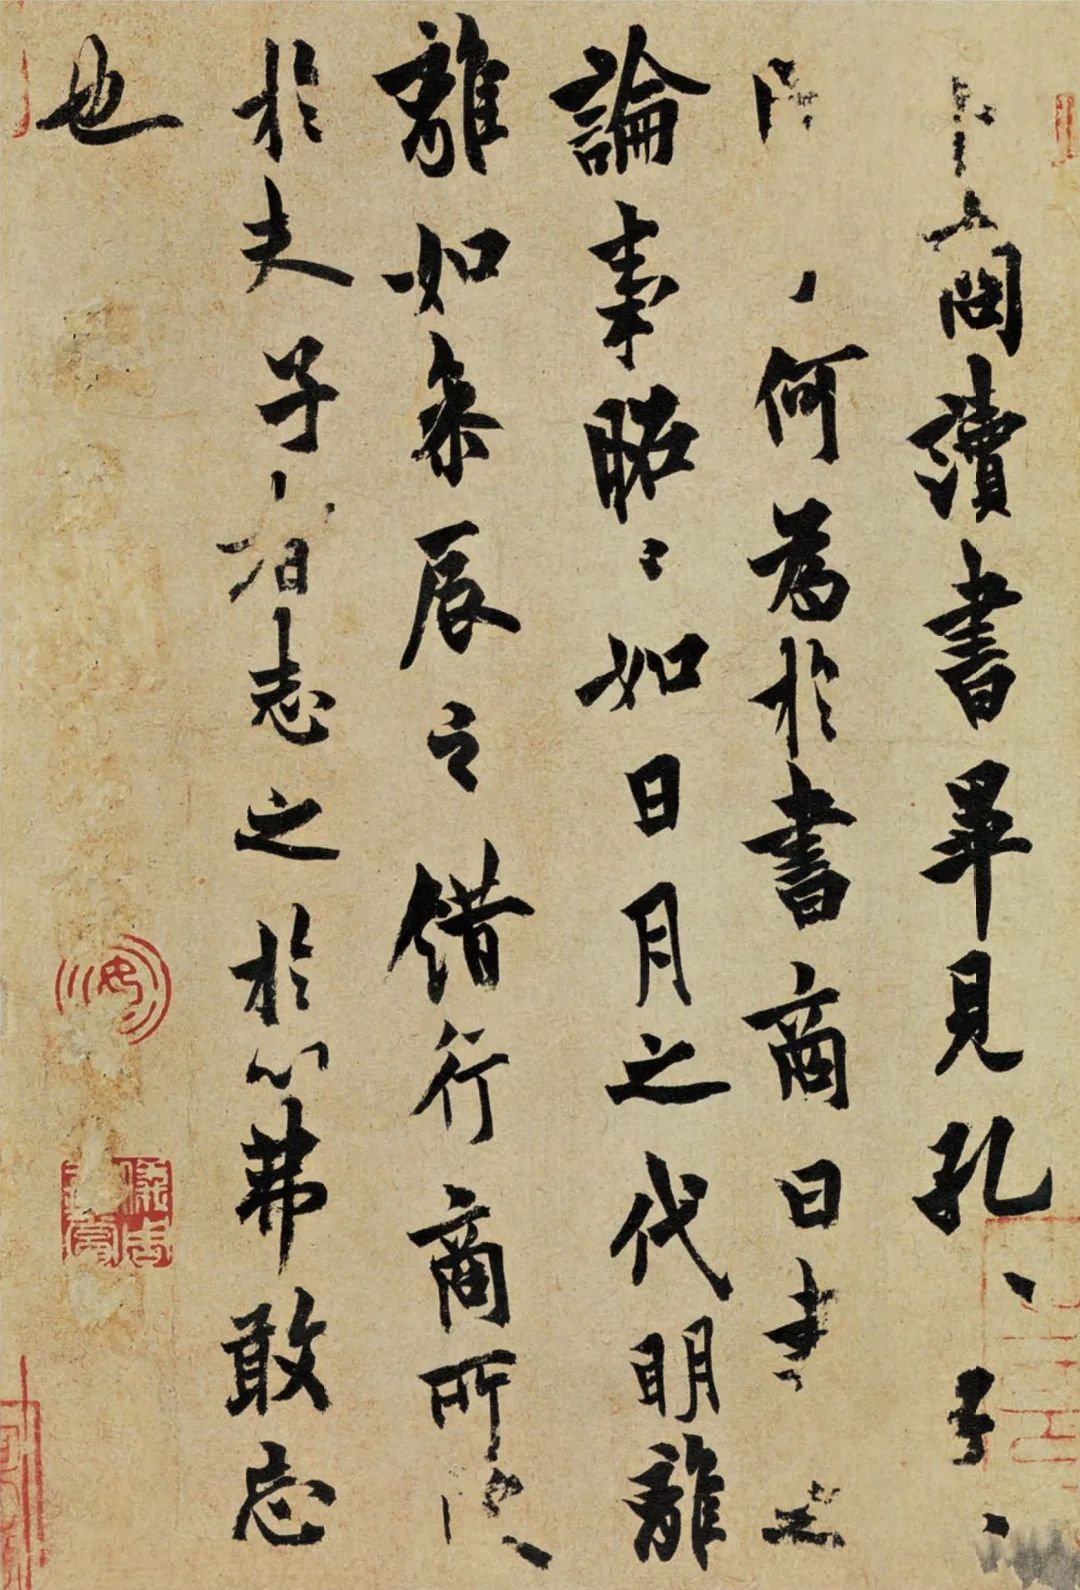 卜商讀書畢見孔、子、
何為於書商曰書之
論事昭〻如日月之代明離
離如參辰之錯行商所
於夫子者志之於心弗敢忘
也